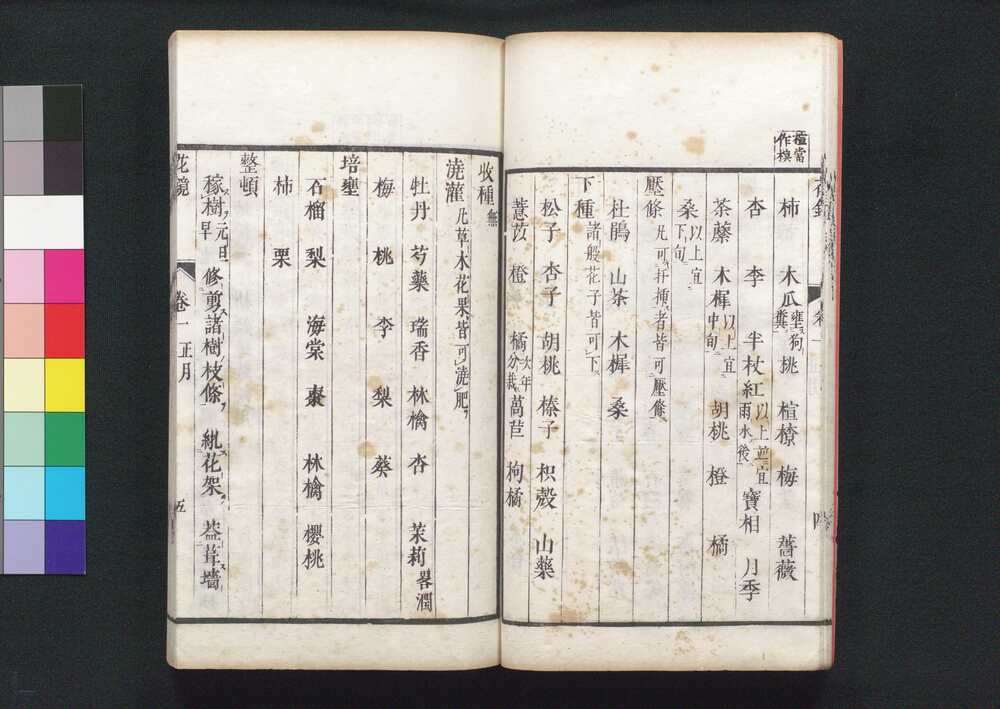 楂當
作榠
柿 木瓜壅狗糞 桃 榠樝 梅 薔薇
杏 李 半杖紅以上並宜雨水後 寶相 月季
荼蘼 木樨以上宜中旬 胡桃 橙 橘
桑以上宜下旬
壓條凡可扦插者皆可壓條
杜鵑 山茶 木樨 桑
下種諸般花子皆可下
松子 杏子 胡桃 榛子 枳殼 山藥
薏苡 橙 橘次年分栽 萵苣 枸橘
收種無
澆灌凡草木花果皆可澆肥
牡丹 芍藥 瑞香 林檎 杏 茉莉畧潤
梅 桃 李 梨 葵
培壅
石榴 梨 海棠 棗 林檎 櫻桃
柿 栗
整頓
稼樹元日早 修剪諸樹枝條 紮花架 葢葺墻
花鏡 卷一 正月 五